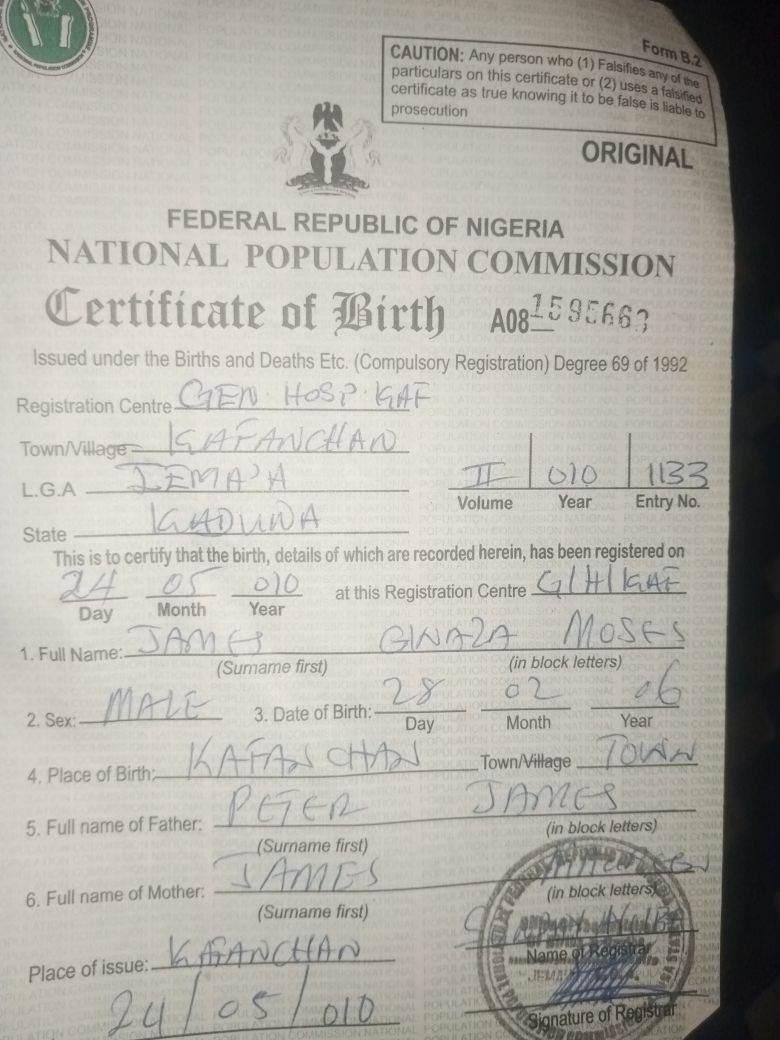 Form B.2
CAUTION: Any person who (1) Falsifies any of the
particulars on this certificate or (2) uses a falsified
certificate as true knowing it to be false is liable to
prosecution
ORIGINAL
FEDERAL REPUBLIC OF NIGERIA
NATIONAL POPULATION COMMISSION
Certificate of Birth A08 1595663
Issued under the Births and Deaths Etc. (Compulsory Registration) Degree 69 of 1992
Registration Centre GEN. HOSP. KAF
Town/Village KAFANCHAN
L.G.A JEMA'A
II 010 1133
Volume Year Entry No.
State KADUNA
This is to certify that the birth, details of which are recorded herein, has been registered on
24 05 010 at this Registration Centre G/H/KAF
Day Month Year
1. Full Name: JAMES GWAZA MOSES
(Surname first) (in block letters)
2. Sex: MALE 3. Date of Birth: 28 02 06
Day Month Year
4. Place of Birth: KAFANCHAN Town/Village TOWN
5. Full name of Father: PETER JAMES
(Surname first) (in block letters)
6. Full name of Mother: JAMES
(Surname first) (in block letters)
Name of Registrar
Place of issue: KAFANCHAN
24/05/010
Signature of Registrar